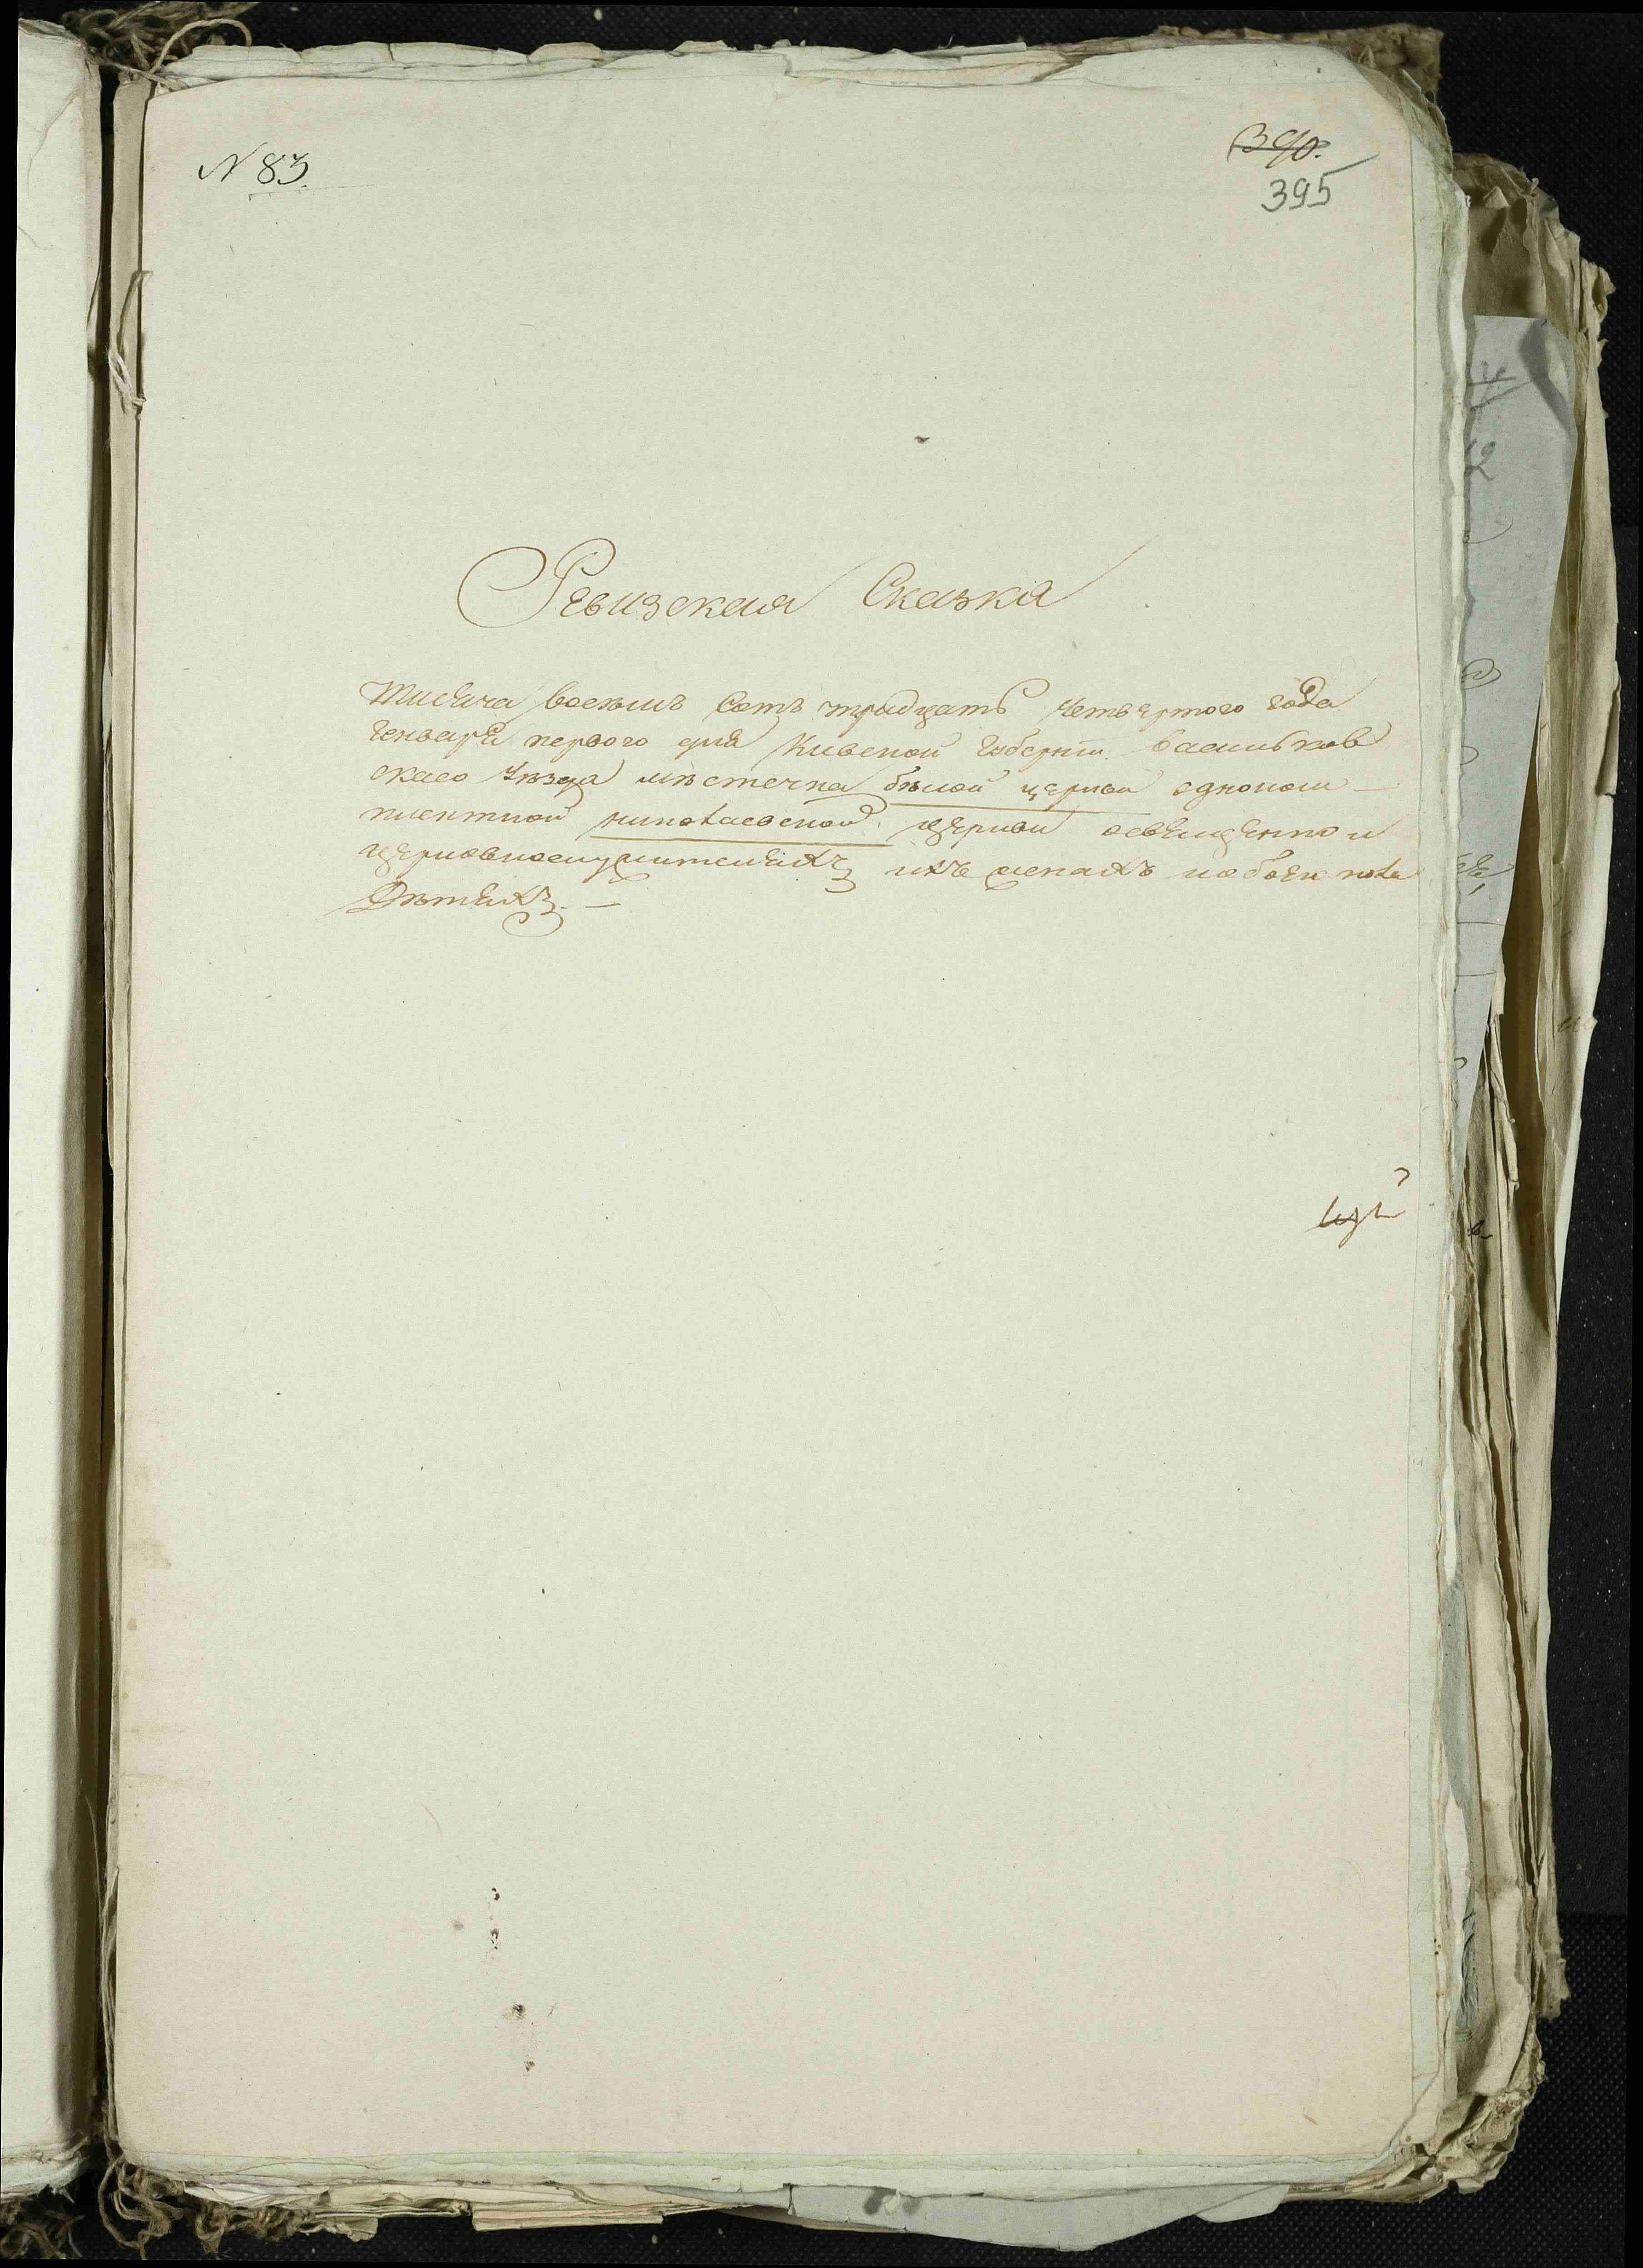 N 83.
390.
395
Ревизская Сказка
Тисяча восемъ сотъ тридцать четвертого года
Генваря первого дня Киевской Губернiи Васильков
скаго уезда мѣстечка бѣлой церкви однокош–
плектной николаевской церкви освященно и
церковнослужителяхъ ихъ женахъ и обоего пола
Дѣтяхъ. —